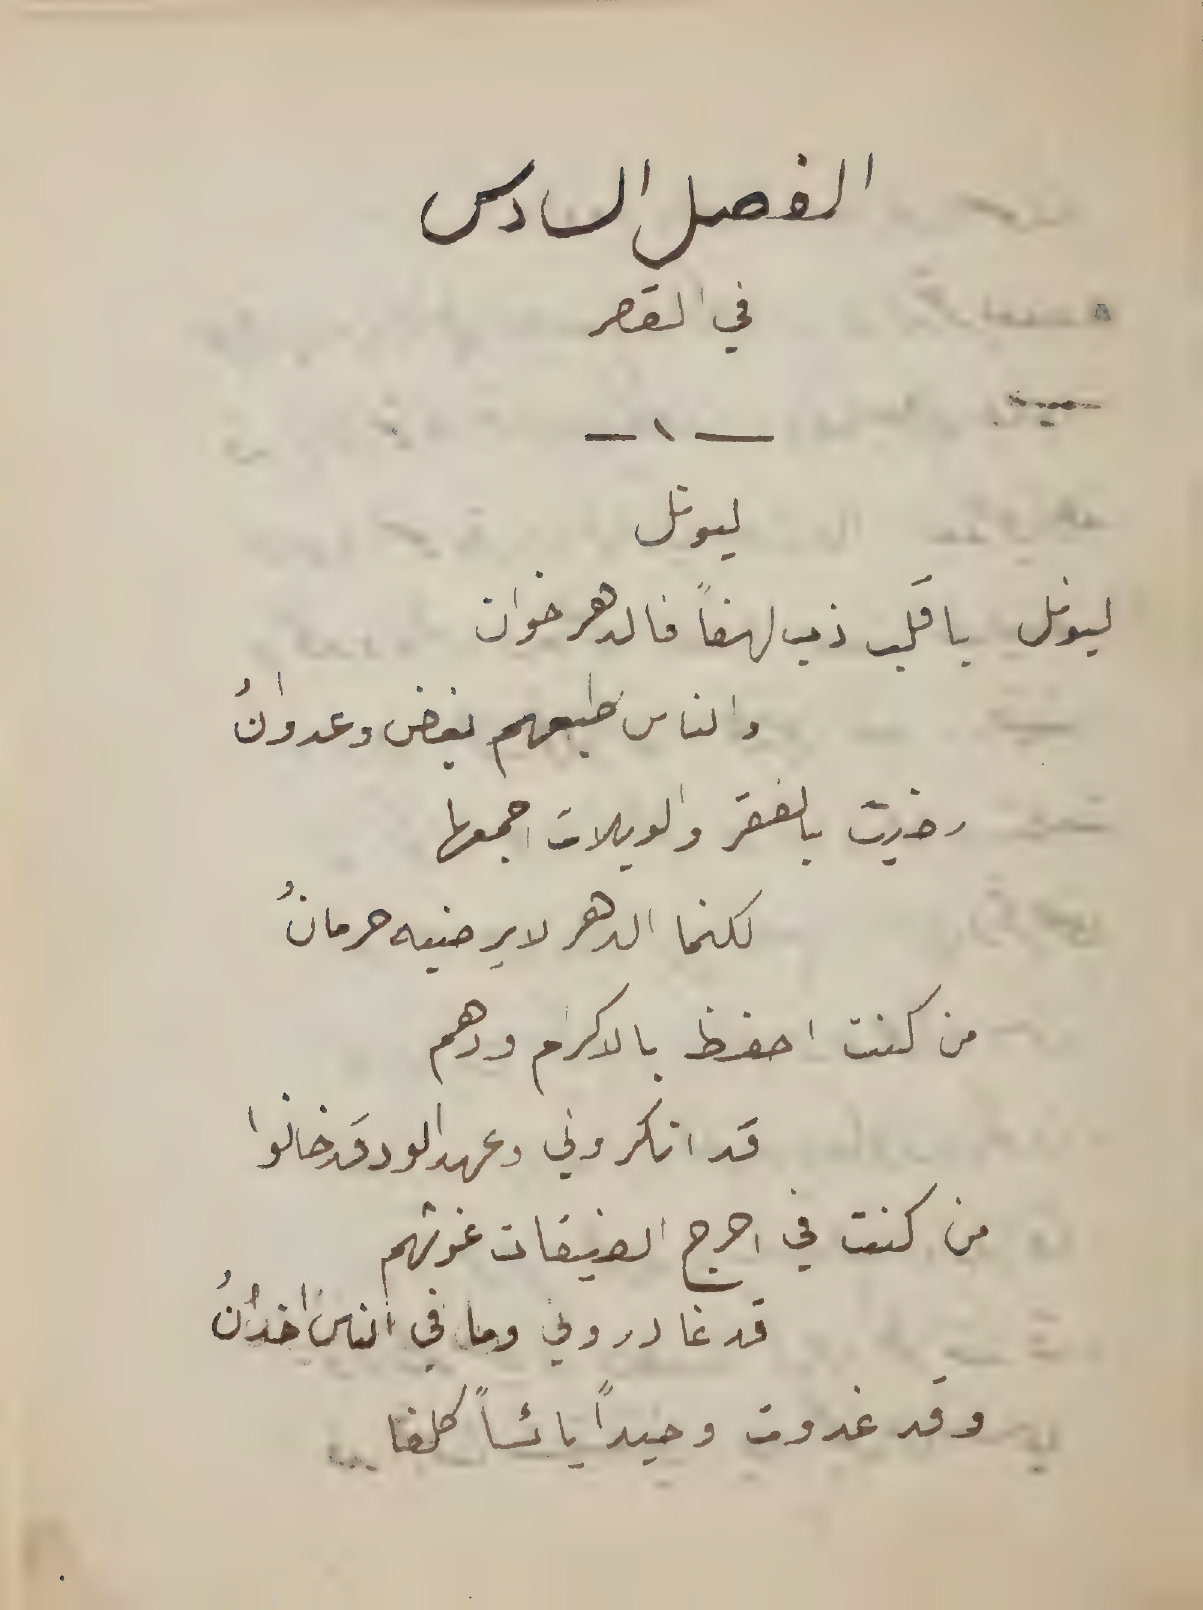 الفصل السادس
في القصر
— ١ —
ليونل
ليونل يا قلب ذب لهفاً فالدهر خوان
والناس طبعهم بغض وعدوانُ
رضيت بالفقر والويلات اجمعها
لكنما الدهر لا يرضيه حرمانُ
من كنت احفظ بالاكرام ودهم
قد انكروني وعهد الود قد خانوا
من كنت في احرج الضيقات غوثهم
قد غادروني وما في الناس اخدانُ
وقد غدوت وحيداً يائساً كلفا